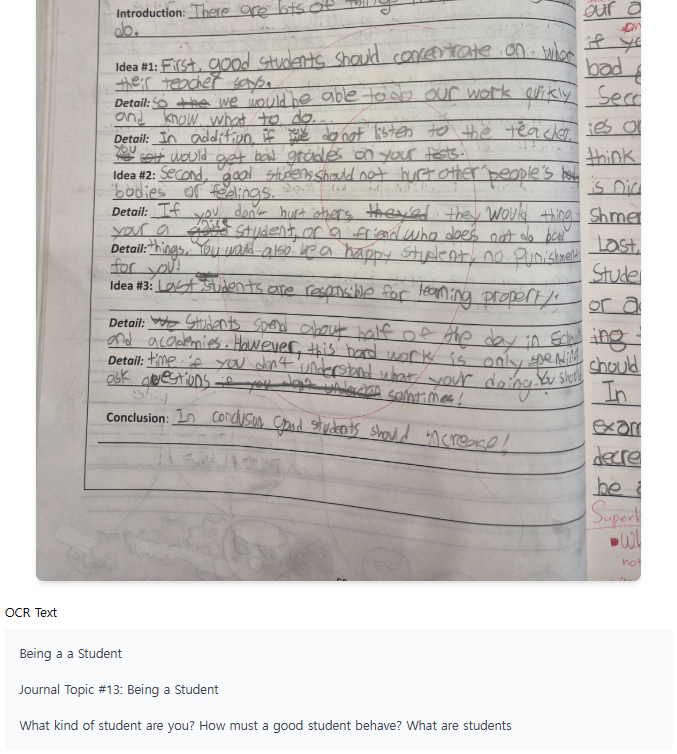 Introduction: There are lots of things
do.
Idea #1: First, good students should concentrate on what
their teacher says.
Detail: So the we would be able to do our work quikly
and know what to do.
Detail: In addition, if do not listen to the teacher,
You would get bad grades on your tests.
Idea #2: Second, good students should not hurt other people's
bodies or feelings.
Detail: If you don't hurt others, they'ed they would thing
your a student, or a friend who does not do bad
Detail: things. You would also be a happy student, no punishment
for you!
Idea #3: Last, students are responsible for learning property.
Detail: We Students spend about half of the day in
and academies. However, this hard work is only spending
Detail: time if you don't understand what your doing. You should
ask questions if you don't understan somtimes!
Conclusion: In concluson good students should increase!
our
if yo
bad
Seco
ies or
think
is nic
shmer
Last,
Stude
or a
ing
should
In
exam
decre
be a
Super
not
OCR Text
Being a a Student
Journal Topic #13: Being a Student
What kind of student are you? How must a good student behave? What are students